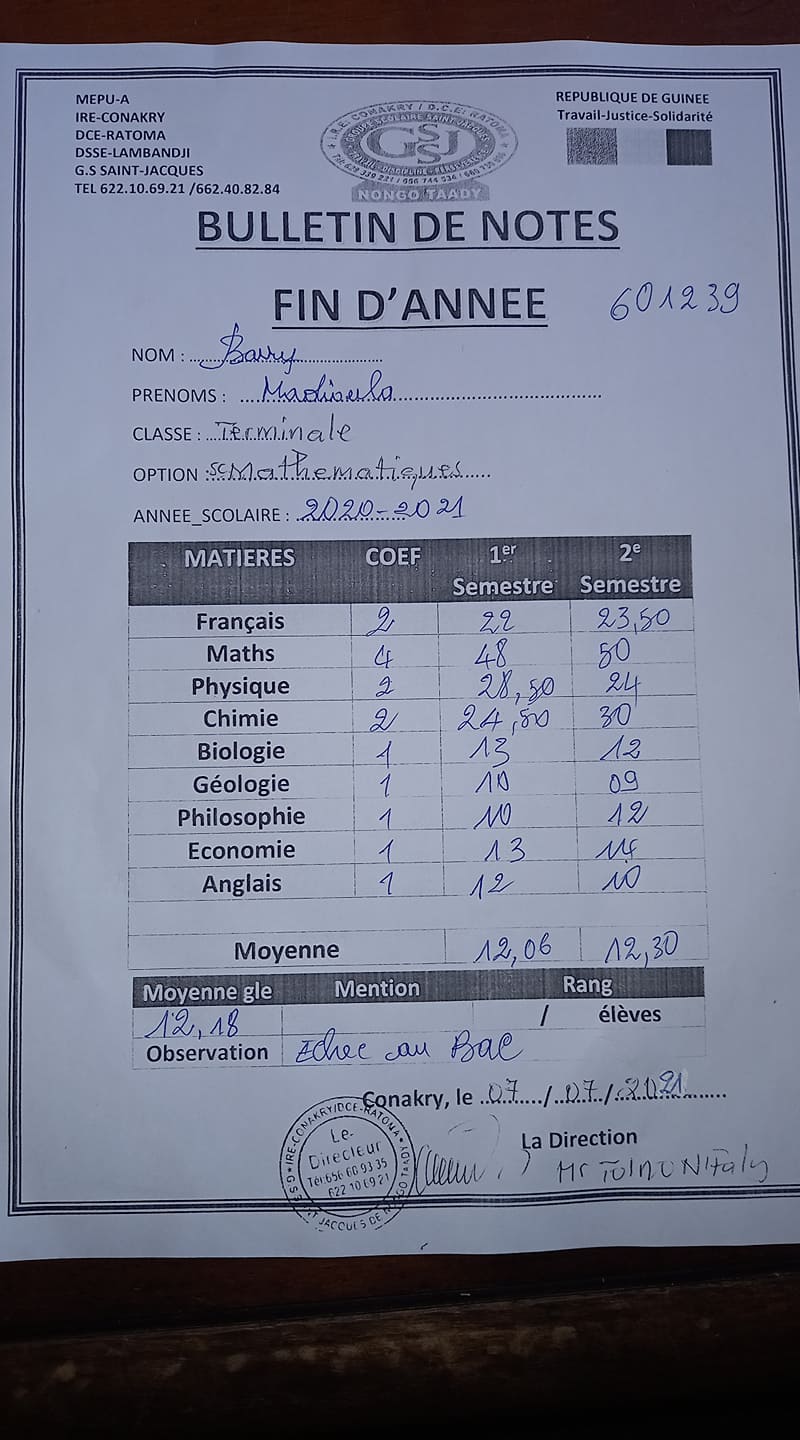 MEPU-A
IRE-CONAKRY
DCE-RATOMA
DSSE-LAMBANDJI
G.S SAINT-JACQUES
TEL 622.10.69.21 /662.40.82.84
I.R.E. CONAKRY / D.C.E. RATOMA
GROUPE SCOLAIRE SAINT JACQUES
GSSJ
NONGO TAADY
REPUBLIQUE DE GUINEE
Travail-Justice-Solidarité
BULLETIN DE NOTES
FIN D'ANNEE 601239
NOM : Barry
PRENOMS :
CLASSE : Terminale
OPTION : SC Mathematiques
ANNEE_SCOLAIRE : 2020-2021
MATIERES COEF 1er Semestre 2e Semestre
Français 2 22 23,50
Maths 4 48 50
Physique 2 28,50 24
Chimie 2 24,50 30
Biologie 1 13 12
Géologie 1 10 09
Philosophie 1 10 12
Economie 1 13 14
Anglais 1 12 10
Moyenne 12,06 12,30
Moyenne gle Mention Rang
12,18 / élèves
Observation Echec au Bac
Conakry, le 07/07/2021
La Direction
Le Directeur
Tél 656 66 93 35
622 10 69 21
IRE-CONAKRY/DCE-RATOMA
Mr